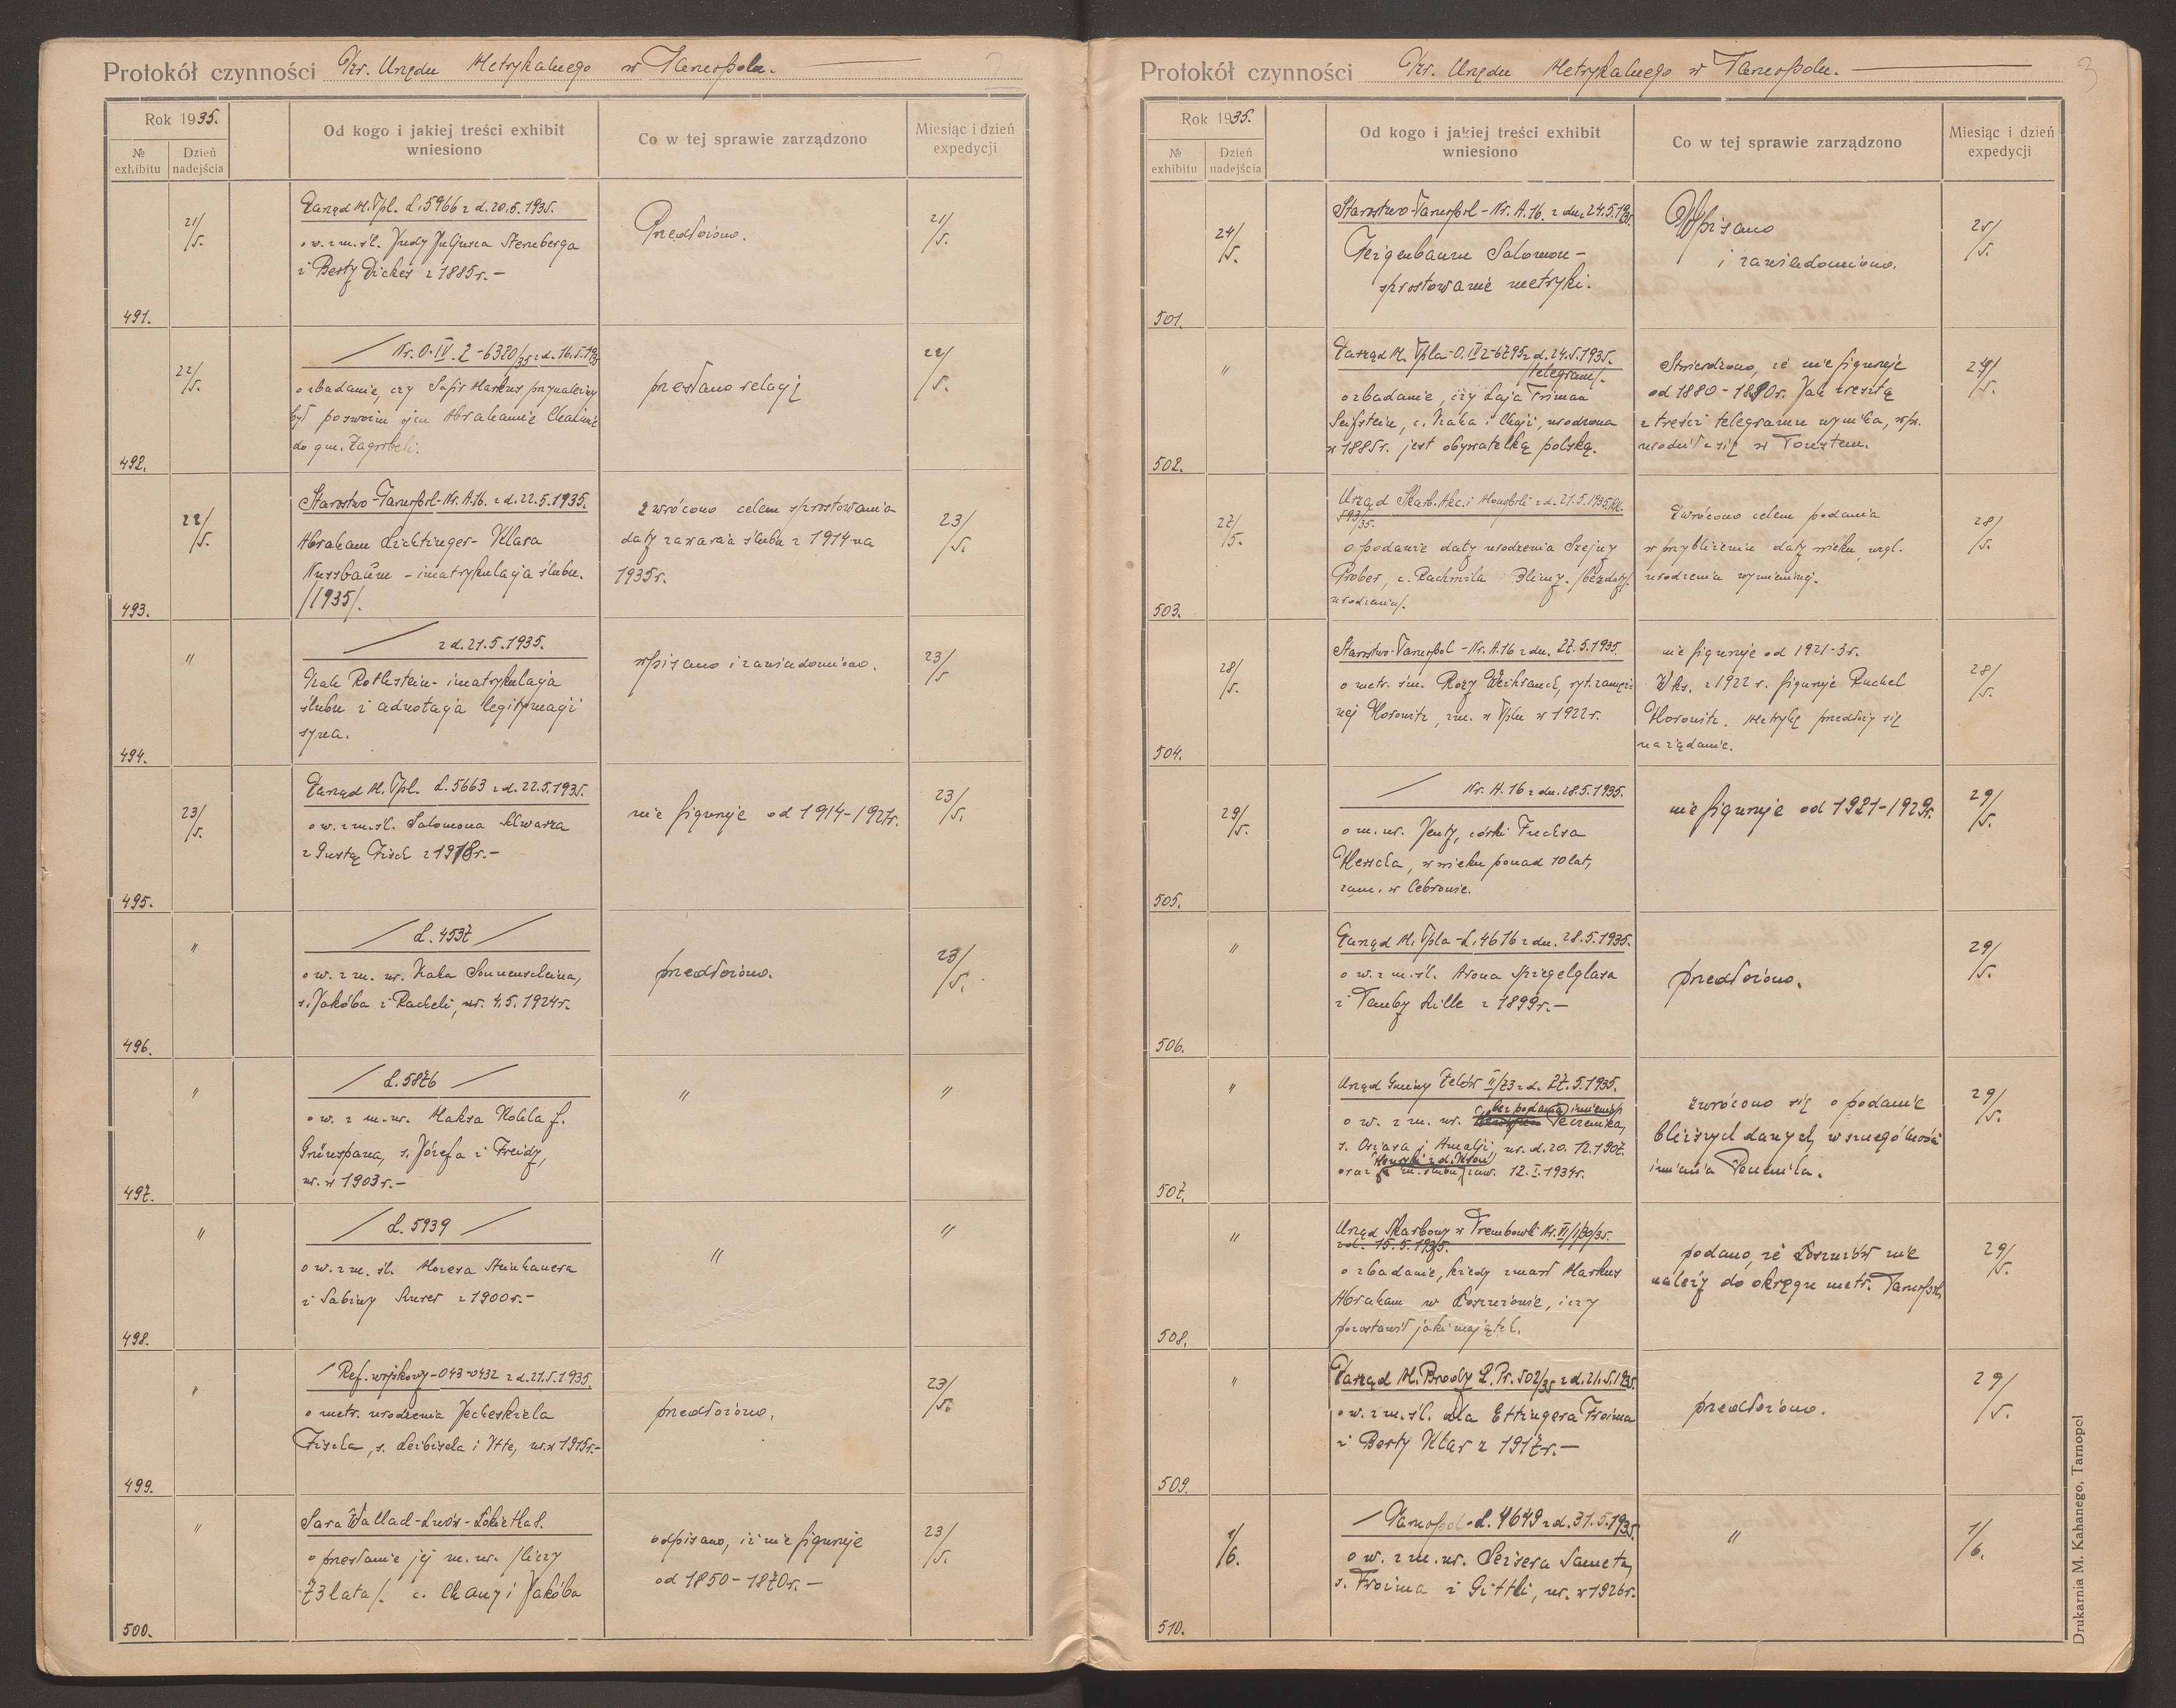 Protokół czynności Izr. Urzędu Metrykalnego w Tarnopolu.
Rok 1935.
№ exhibitu
Dzień nadejścia
Od kogo i jakiej treści exhibit
wniesiono
Co w tej sprawie zarządzono
Miesiąc i dzień
expedycji
491.
21/5.
Zarząd M. Tpl. L. 5966 z d. 20.5.1935.
o w. z m. śl. Judy Juljusza Sternberga
i Berty Dickes z 1885 r. –
Przedłożono.
21/5.
492.
22/5.
Nr. O. IV. 2 – 6320/35 z d. 16.5.1935
o zbadanie, czy Safir Markus przynależny
był po swoim ojcu Abrahamie Chaimie
do gm. Zagrobeli.
przesłano relację
22/5.
493.
22/5.
Starostwo-Tarnopol-Nr. A.16. z d. 22.5.1935.
Abraham Lichtinger – Klara
Nussbaum – imatrykulacja ślubu.
/1935/.
zwrócono celem sprostowania
daty zawarcia ślubu z 1914 na
1935 r.
23/5.
494.
"
z d. 21.5.1935.
Rothstein – imatrykulacja
ślubu i adnotacja legitymacji
syna.
wpisano i zawiadomiono.
23/5
495.
23/5.
Zarząd M. Tpl. L. 5663 z d. 22.5.1935.
o w. z m. śl. Salomona
z Gustą Fisch z 1918 r. –
nie figuruje od 1914-1927 r.
23/5.
496.
"
L. 4537
o w. z m. ur. Sonnenscheina,
s. Jakóba i Racheli, ur. 4.5.1924 r.
przedłożono.
23/5.
497.
"
L. 5876
o w. z m. ur. Maksa Kohla f.
Grünspana, s. Józefa i Freidy,
ur. w 1903 r. –
"
"
498.
"
L. 5939
o w. z m. śl. Mozesa Steinhauera
i Sabiny z 1900 r. –
"
"
499.
"
Ref. wojskowy – 043-0432 z d. 21.5.1935.
o metr. urodzenia Jecheskiela
Fischla, s. Leibischa i Itte, ur. w 1915 r. –
przedłożono.
23/5.
500.
"
Sara Wallad – Lwów –
o przesłanie jej m. ur. /liczy
73 lata/. c. Chany i Jakóba
odpisano, iż nie figuruje
od 1850-1870 r. –
23/5.
Protokół czynności Izr. Urzędu Metrykalnego w Tarnopolu.
3
Rok 1935.
№ exhibitu
Dzień nadejścia
Od kogo i jakiej treści exhibit
wniesiono
Co w tej sprawie zarządzono
Miesiąc i dzień
expedycji
501.
24/5.
Starostwo-Tarnopol – Nr. A.16. z dn. 24.5.1935.
Feigenbaum Salomon –
sprostowanie metryki.
Wpisano
i zawiadomiono.
25/5.
502.
"
Zarząd M. Tpla – O. IV 2 – 6795 z d. 24.5.1935.
/telegram/.
o zbadanie, czy Laja Friman
Seifstein, c. i Chaji, urodzona
w 1885 r. jest obywatelką polską.
Stwierdzono, że nie figuruje
od 1880-1890 r. Jak zresztą
z treści telegramu wynika, wp.
urodziła się w Toustem.
503.
27/5.
Urząd Skarb. Akc. i Monopoli z d. 21.5.1935
593/35.
o podanie daty urodzenia Szejny
Prober, c. Rachmila i Bliny. /bez daty
urodzenia/.
Zwrócono celem podania
w przybliżeniu daty wieku, wzgl.
urodzenia wymienionej.
28/5.
504.
28/5.
Starostwo-Tarnopol – Nr. A.16 z dn. 27.5.1935.
o metr. śm. Rozy Weihrauch, ryt. zamęż-
nej Horowitz, zm. w Tplu w 1922 r.
nie figuruje od 1921-3 r.
W ks. z 1922 r. figuruje Ruchel
Horowitz. Metrykę przedłoży się
na żądanie.
28/5.
505.
29/5.
Nr. A. 16 z dn. 28.5.1935.
o m. ur. Jenty, córki Fuchsa
Herscha, w wieku ponad 10 lat,
zam. w Cebrowie.
nie figuruje od 1921-1929 r.
29/5.
506.
"
Zarząd M. Tpla – L. 4616 z dn. 28.5.1935.
o w. z m. śl. Arona Spiegelglasa
i Tauby Kille z 1899 r. –
przedłożono.
29/5.
507.
"
Urząd Gminy Zelów II/73 z d. 27.5.1935.
(bez podania imienia)
o w. z m. ur. Peczenika,
s. Osiasa i Amalji, ur. d. 20.12.1907.
oraz m. ślubu zaw. 12.I.1934 r.
zwrócono się o podanie
bliższych danych, w szczególności
imienia Peczenika.
29/5.
508.
"
Urząd Skarbowy w Trembowli Nr. VI/1/30/35.
z d. 15.5.1935.
o zbadanie, kiedy zmarł Markus
Abraham w Łoszniowie, i czy
pozostawił jaki majątek.
podano, że Łoszniów nie
należy do okręgu metr. Tarnopol.
29/5.
509.
"
Zarząd M. Brody L. Pr. 502/35 z d. 21.5.1935.
o w. z m. śl. dla Ettingera Froima
i Berty Klar z 1917 r. –
przedłożono.
29/5.
510.
1/6.
Tarnopol – L. 4649 z d. 31.5.1935.
o w. z m. ur. Leisera Sametz,
s. Froima i Gittli, ur. w 1926 r.
"
1/6.
Drukarnia M. Kahanego, Tarnopol